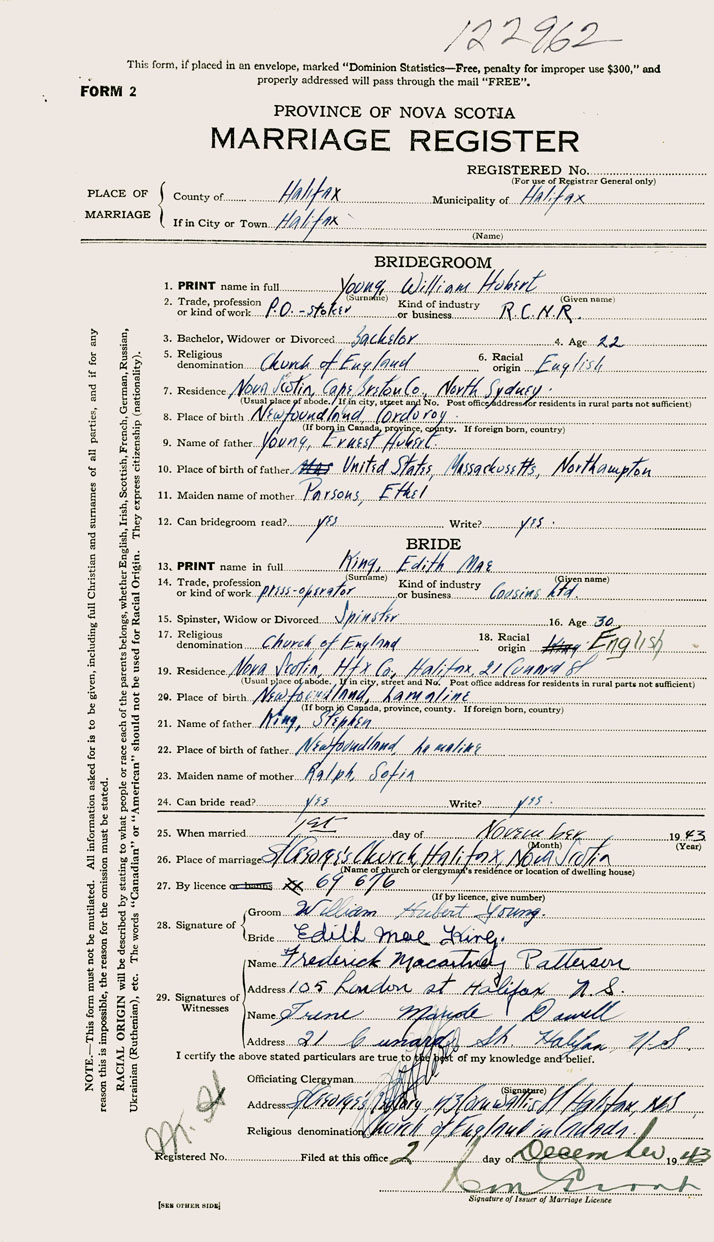 122962
This form, if placed in an envelope, marked "Dominion Statistics—Free, penalty for improper use $300," and
properly addressed will pass through the mail "FREE".
FORM 2
PROVINCE OF NOVA SCOTIA
MARRIAGE REGISTER
REGISTERED No.
(For use of Registrar General only)
PLACE OF MARRIAGE
County of Halifax Municipality of Halifax
If in City or Town Halifax
(Name)
BRIDEGROOM
1. PRINT name in full Young, William Hubert
(Surname) (Given name)
2. Trade, profession or kind of work P.O. - stoker Kind of industry or business R.C.N.R.
3. Bachelor, Widower or Divorced Bachelor 4. Age 22
5. Religious denomination Church of England 6. Racial origin English
7. Residence Nova Scotia, Cape Breton Co., North Sydney.
(Usual place of abode. If in city, street and No. Post office address for residents in rural parts not sufficient)
8. Place of birth Newfoundland, Cordoroy.
(If born in Canada, province, county. If foreign born, country)
9. Name of father Young, Ernest Hubert.
10. Place of birth of father United States, Massachusetts, Northampton
11. Maiden name of mother Parsons, Ethel
12. Can bridegroom read? yes Write? yes.
BRIDE
13. PRINT name in full King, Edith Mae
(Surname) (Given name)
14. Trade, profession or kind of work press-operator Kind of industry or business Cousins Ltd.
15. Spinster, Widow or Divorced Spinster 16. Age 30
17. Religious denomination Church of England 18. Racial origin King English
19. Residence Nova Scotia, Hfx Co, Halifax, 21 Cunard St
(Usual place of abode. If in city, street and No. Post office address for residents in rural parts not sufficient)
20. Place of birth Newfoundland, Lamaline
(If born in Canada, province, county. If foreign born, country)
21. Name of father King, Stephen
22. Place of birth of father Newfoundland, Lamaline
23. Maiden name of mother Ralph, Sofia
24. Can bride read? yes Write? yes.
25. When married 1st day of November 1943
(Month) (Year)
26. Place of marriage St George's Church, Halifax, Nova Scotia
(Name of church or clergyman's residence or location of dwelling house)
27. By licence or banns 69 676
(If by licence, give number)
28. Signature of
Groom William Hubert Young.
Bride Edith Mae King.
29. Signatures of Witnesses
Name Frederick Macartney Patterson
Address 105 London st Halifax N.S.
Name Irene Maude Dowell
Address 21 Cunard St Halifax, N.S.
I certify the above stated particulars are true to the best of my knowledge and belief.
Officiating Clergyman
(Signature)
Address St George's Rectory, 43 Cornwallis St Halifax, N.S.
Religious denomination Church of England in Canada.
Registered No. Filed at this office 2 day of December 1943
Signature of Issuer of Marriage Licence
[SEE OTHER SIDE]
NOTE.—This form must not be mutilated. All information asked for is to be given, including full Christian and surnames of all parties, and if for any
reason this is impossible, the reason for the omission must be stated.
RACIAL ORIGIN will be described by stating to what people or race each of the parents belongs, whether English, Irish, Scottish, French, German, Russian,
Ukrainian (Ruthenian), etc. The words "Canadian" or "American" should not be used for Racial Origin. They express citizenship (nationality).